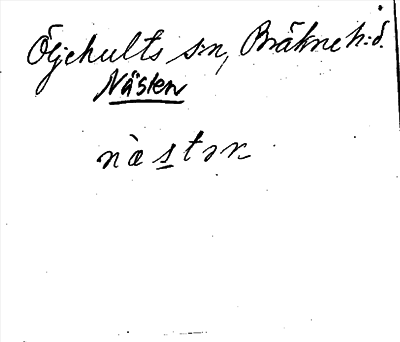 Öljehults sn, Bräkne h:d.
Nästen
næstər